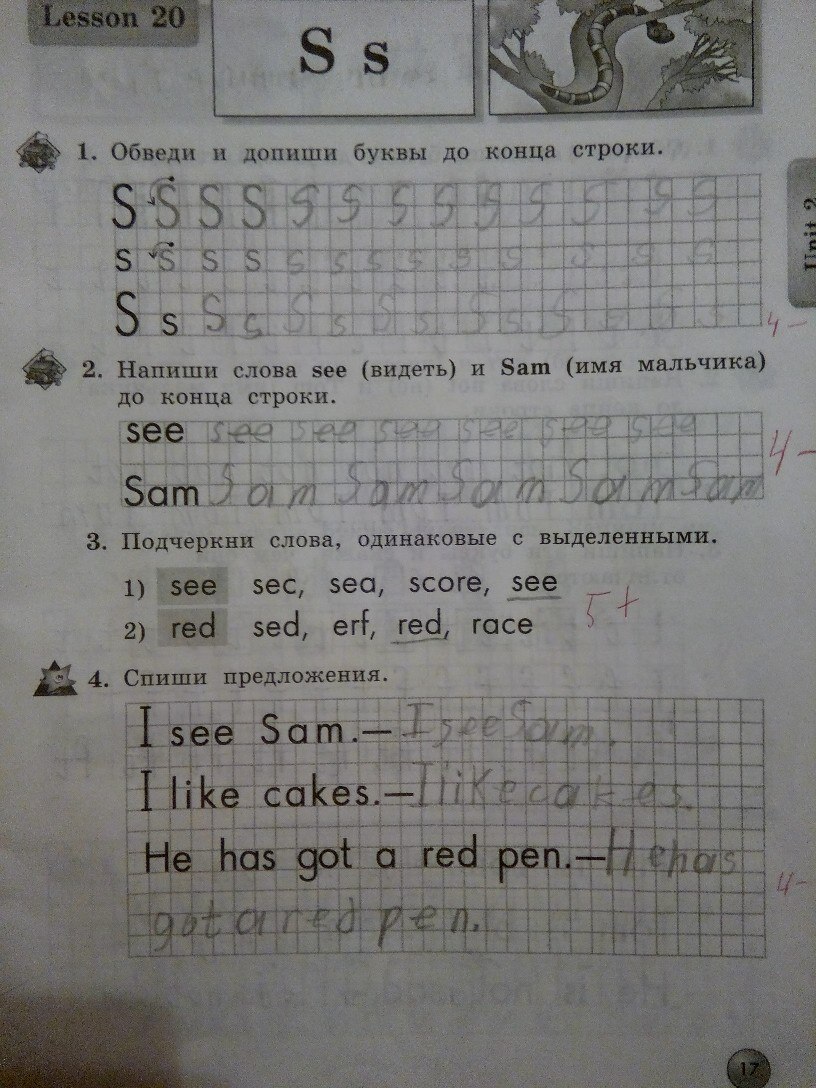 Lesson 20
S s
1. Обведи и допиши буквы до конца строки.
S S S S S S S S S S S S S
s s s s s s s s s s s s s
S s S s S s S s S s S s S s
4-
2. Напиши слова see (видеть) и Sam (имя мальчика)
до конца строки.
see see see see see see see
4-
Sam Sam Sam Sam Sam Sam
3. Подчеркни слова, одинаковые с выделенными.
1) see sec, sea, score, see
2) red sed, erf, red, race
5+
4. Спиши предложения.
I see Sam.— I see Sam.
I like cakes.— I like cakes.
He has got a red pen.— He has
4-
got a red pen.
Unit 2
17